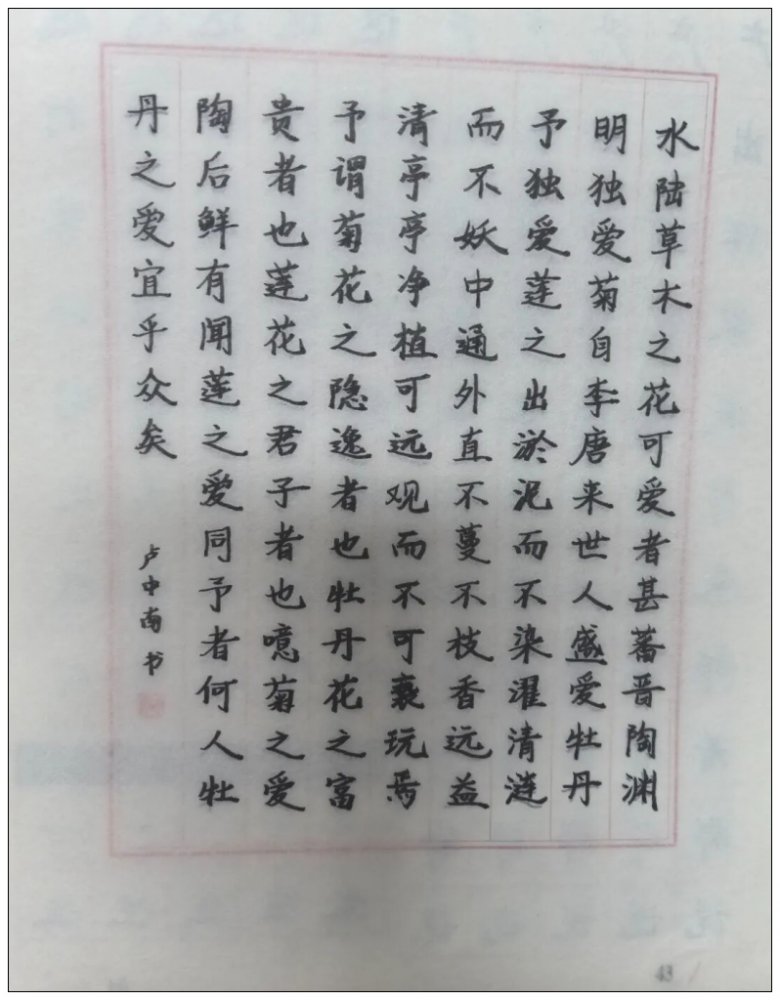 水陆草木之花可爱者甚蕃晋陶渊
明独爱菊自李唐来世人盛爱牡丹
予独爱莲之出淤泥而不染濯清涟
而不妖中通外直不蔓不枝香远益
清亭亭净植可远观而不可亵玩焉
予谓菊花之隐逸者也牡丹花之富
贵者也莲花之君子者也噫菊之爱
陶后鲜有闻莲之爱同予者何人牡
丹之爱宜乎众矣
卢中南书
43